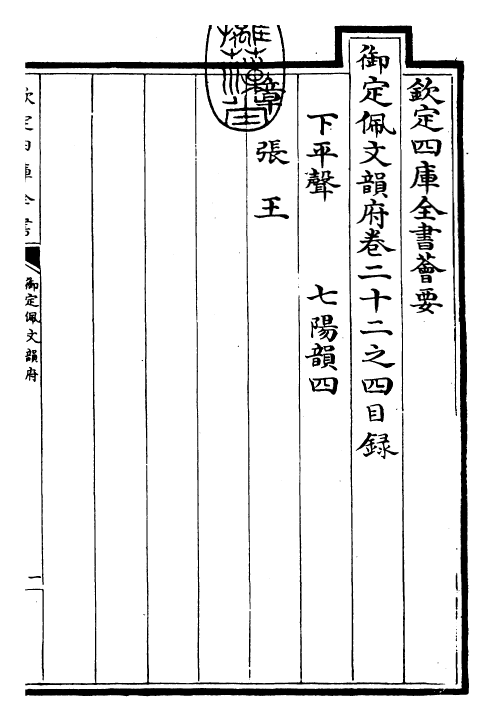 欽定四庫全書薈要
御定佩文韻府卷二十二之四目録
下平聲 七陽韻四
章 張 王
欽定四庫全書
御定佩文韻府
一